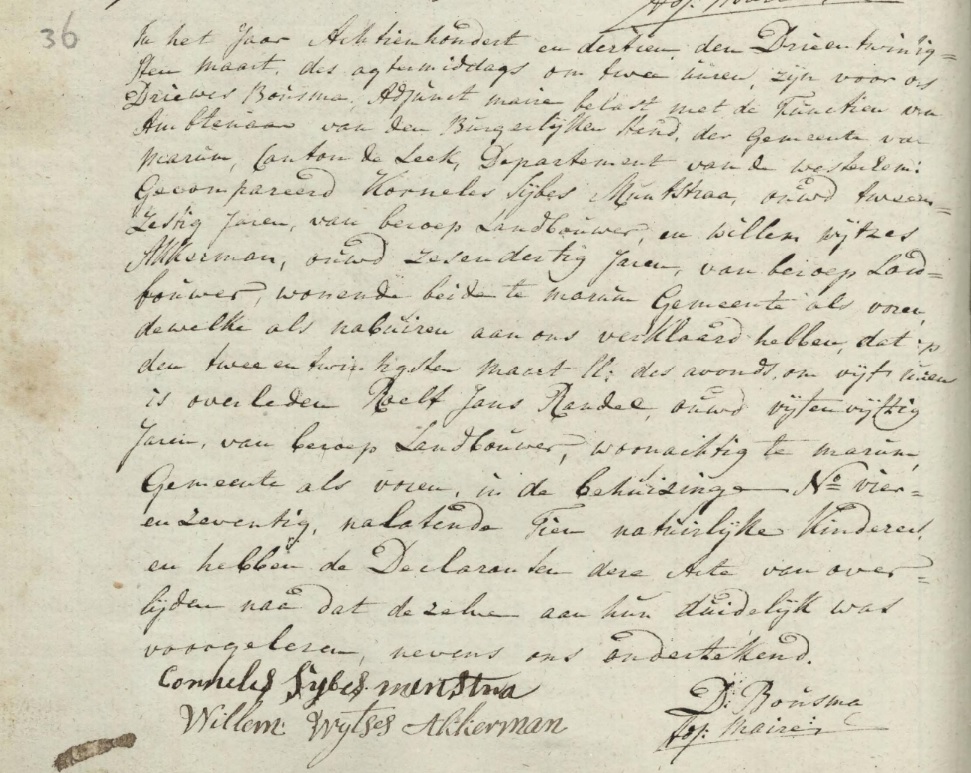 36
In het Jaar Achtienhondert en dertien, den Drieentwinig=
sten maart, des agtermiddags om twee üüren, zijn voor ons
Driewes Boüsma, Adjünct maire belast met de Functien van
Ambtenaar van den Bürgerlijken stand, der Gemeente van
Marüm, Canton de Leek, Departement van de westerEem:
Gecompareerd Kornelis Sijbes Muntstraa, oüwd tweeen=
zestig Jaren, van beroep Landboüwer, en willem wijtzes
Akkerman, oüwd zesendertig Jaren, van beroep Land=
boüwer, wonende beide te marüm Gemeente als voren,
dewelke als nabüiren aan ons verklaard hebben, dat op
den twee en twintigsten maart ll: des avonds, om vijf üüren
is overleden Roelf Jans Randel, oüwd vijfenvijftig
Jaren, van beroep Landboüwer, woonachtig te marüm,
Gemeente als voren, in de behüizinge No vier=
en zeventig, nalatende Tien natüirlijke Kinderen,
en hebben de Declaranten deze Acte van over=
lijden naa dat dezelve aan hün düidelijk was
voorgelezen, nevens ons ondertekend.
Cornnelis Sijbes munstra
Willem Wytses Akkerman
D: Boüsma
Adj: Maire: